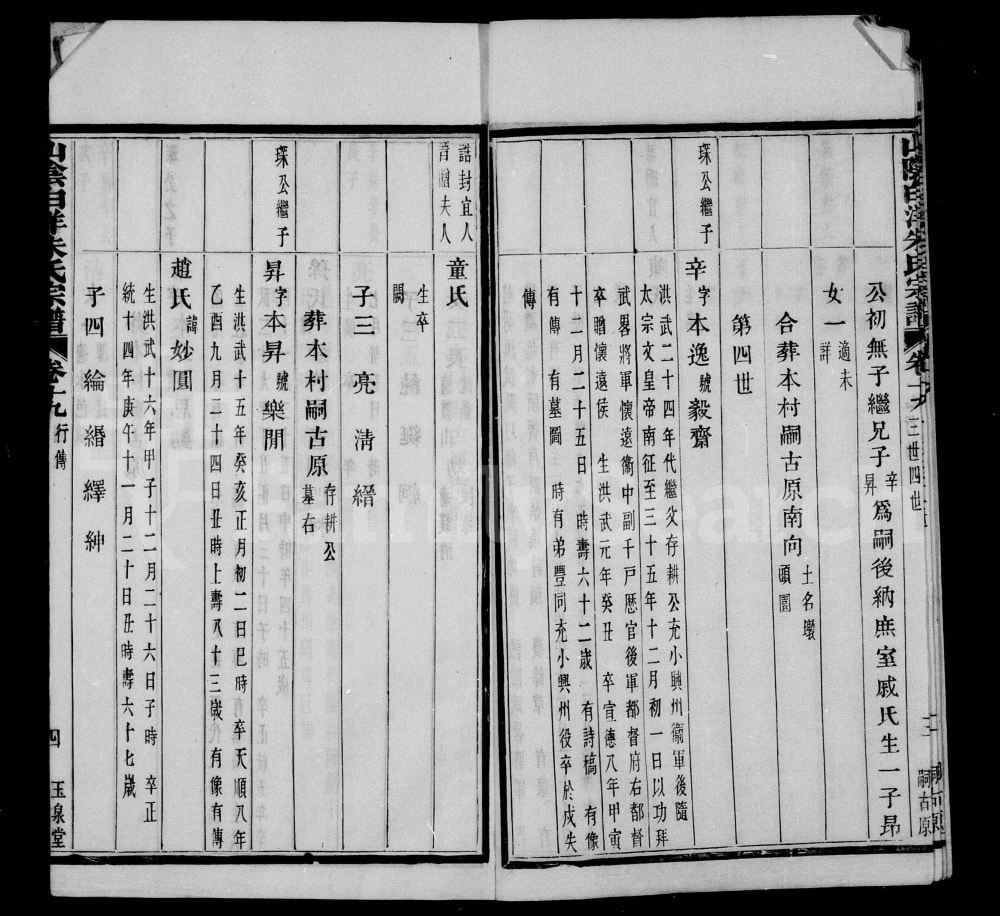 公初無子繼兄子辛昇為嗣後納庶室戚氏生一子昂
女一適未詳
合葬本村嗣古原南向土名墩頭園
第四世
琛公繼子
辛字本逸號毅齋
洪武二十四年代繼父存耕公充小興州衛軍後隨
太宗文皇帝南征至三十五年十二月初一日以功拜
武畧將軍懷遠衛中副千戸歴官後軍都督府右都督
卒贈懷遠侯 生洪武元年癸丑 卒宣德八年甲寅
十二月二十五日時壽六十二歲 有詩稿 有像
有傳有墓圖 時有弟豐同充小興州役卒於戍失
傳
三世四世
嗣古原
誥封宜人
晋贈夫人
童氏
生卒
闕
子三 亮 清 縉
葬本村嗣古原存耕公墓右
琛公繼子
昇字本昇號樂閒
生洪武十五年癸亥正月初二日巳時 卒天順八年
乙酉九月三十四日丑時上壽八十三歲有像有傳
趙氏諱妙圓
生洪武十六年甲子十二月二十六日子時 卒正
統十四年庚午十一月二十日丑時壽六十七歲
子四 綸 緡 繹 紳
山陰白洋朱氏宗譜 卷十九 行傳
四
玉泉堂